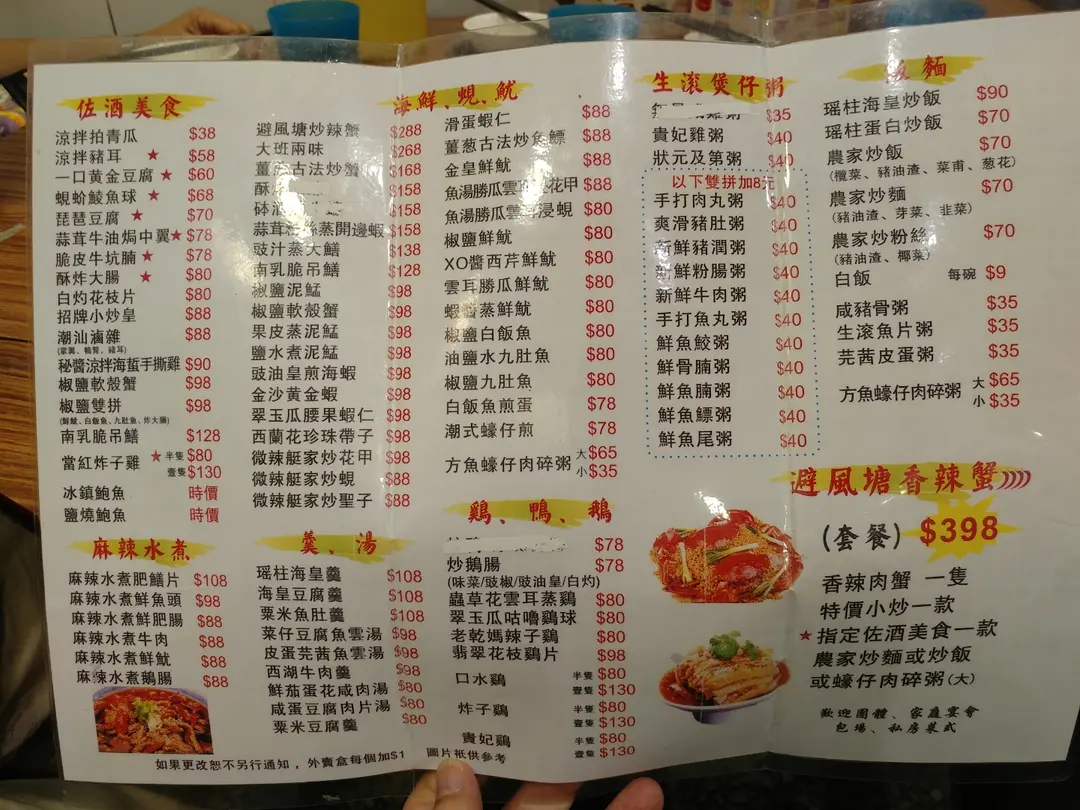 佐酒美食
涼拌拍青瓜 $38
涼拌豬耳 ★ $58
一口黃金豆腐 ★ $60
蜆蚧鯪魚球 ★ $68
琵琶豆腐 ★ $70
蒜茸牛油焗中翼★ $78
脆皮牛坑腩 ★ $78
酥炸大腸 ★ $80
白灼花枝片 $80
招牌小炒皇 $88
潮汕滷雜 $88
秘醬涼拌海蜇手撕雞 $90
椒鹽軟殼蟹 $98
椒鹽雙拼 $98
(鮮魷、白飯魚、九肚魚、炸大腸)
南乳脆吊鱔 $128
當紅炸子雞 ★ 半隻 $80
壹隻 $130
冰鎮鮑魚 時價
鹽燒鮑魚 時價
麻辣水煮
麻辣水煮肥鱔片 $108
麻辣水煮鮮魚頭 $98
麻辣水煮鮮肥腸 $88
麻辣水煮牛肉 $88
麻辣水煮鮮魷 $88
麻辣水煮鵝腸 $88
避風塘炒辣蟹 $288
大班兩味 $268
薑葱古法炒蟹 $168
酥 $158
砵酒 $158
蒜茸粉絲蒸開邊蝦 $158
豉汁蒸大鱔 $138
南乳脆吊鱔 $128
椒鹽泥鯭 $98
椒鹽軟殼蟹 $98
果皮蒸泥鯭 $98
鹽水煮泥鯭 $98
豉油皇煎海蝦 $98
金沙黃金蝦 $98
翠玉瓜腰果蝦仁 $98
西蘭花珍珠帶子 $98
微辣艇家炒花甲 $98
微辣艇家炒蜆 $88
微辣艇家炒聖子 $88
羹、湯
瑶柱海皇羹 $108
海皇豆腐羹 $108
粟米魚肚羹 $108
菜仔豆腐魚雲湯 $98
皮蛋芫茜魚雲湯 $98
西湖牛肉羹 $98
鮮茄蛋花咸肉湯 $80
咸蛋豆腐肉片湯 $80
粟米豆腐羹 $80
海鮮、蜆、魷
滑蛋蝦仁 $88
薑葱古法炒魚鰾 $88
金皇鮮魷 $88
魚湯勝瓜雲耳浸花甲 $88
魚湯勝瓜雲耳浸蜆 $80
椒鹽鮮魷 $80
XO醬西芹鮮魷 $80
雲耳勝瓜鮮魷 $80
蝦醬蒸鮮魷 $80
椒鹽白飯魚 $80
油鹽水九肚魚 $80
椒鹽九肚魚 $80
白飯魚煎蛋 $78
潮式蠔仔煎 $78
方魚蠔仔肉碎粥 大 $65
小 $35
鷄、鴨、鵝
$78
炒鵝腸 $78
(味菜/豉椒/豉油皇/白灼)
蟲草花雲耳蒸鷄 $80
翠玉瓜咕嚕鷄球 $80
老乾媽辣子鷄 $80
翡翠花枝鷄片 $98
口水鷄 半隻 $80
壹隻 $130
炸子鷄 半隻 $80
壹隻 $130
貴妃鷄 半隻 $80
壹隻 $130
生滾煲仔粥
$35
貴妃雞粥 $40
狀元及第粥 $40
以下雙拼加8元
手打肉丸粥 $40
爽滑豬肚粥 $40
新鮮豬潤粥 $40
新鮮粉腸粥 $40
新鮮牛肉粥 $40
手打魚丸粥 $40
鮮魚鮫粥 $40
鮮骨腩粥 $40
鮮魚腩粥 $40
鮮魚鰾粥 $40
鮮魚尾粥 $40
飯麵
瑶柱海皇炒飯 $90
瑶柱蛋白炒飯 $70
農家炒飯 $70
(欖菜、豬油渣、菜甫、葱花)
農家炒麵 $70
(豬油渣、芽菜、韭菜)
農家炒粉絲 $70
(豬油渣、椰菜)
白飯 每碗 $9
咸豬骨粥 $35
生滾魚片粥 $35
芫茜皮蛋粥 $35
方魚蠔仔肉碎粥 大 $65
小 $35
避風塘香辣蟹
(套餐) $398
香辣肉蟹 一隻
特價小炒一款
★指定佐酒美食一款
農家炒麵或炒飯
或蠔仔肉碎粥(大)
歡迎團體、家庭宴會
包場、私房菜式
如果更改恕不另行通知，外賣盒每個加$1 圖片祇供參考